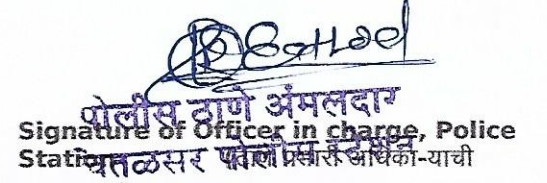 पोलीस ठाणे अंमलदार
Signature of Officer in charge, Police
Station
चितळसर पोलीस स्टेशन प्रभारी अधिका-याची